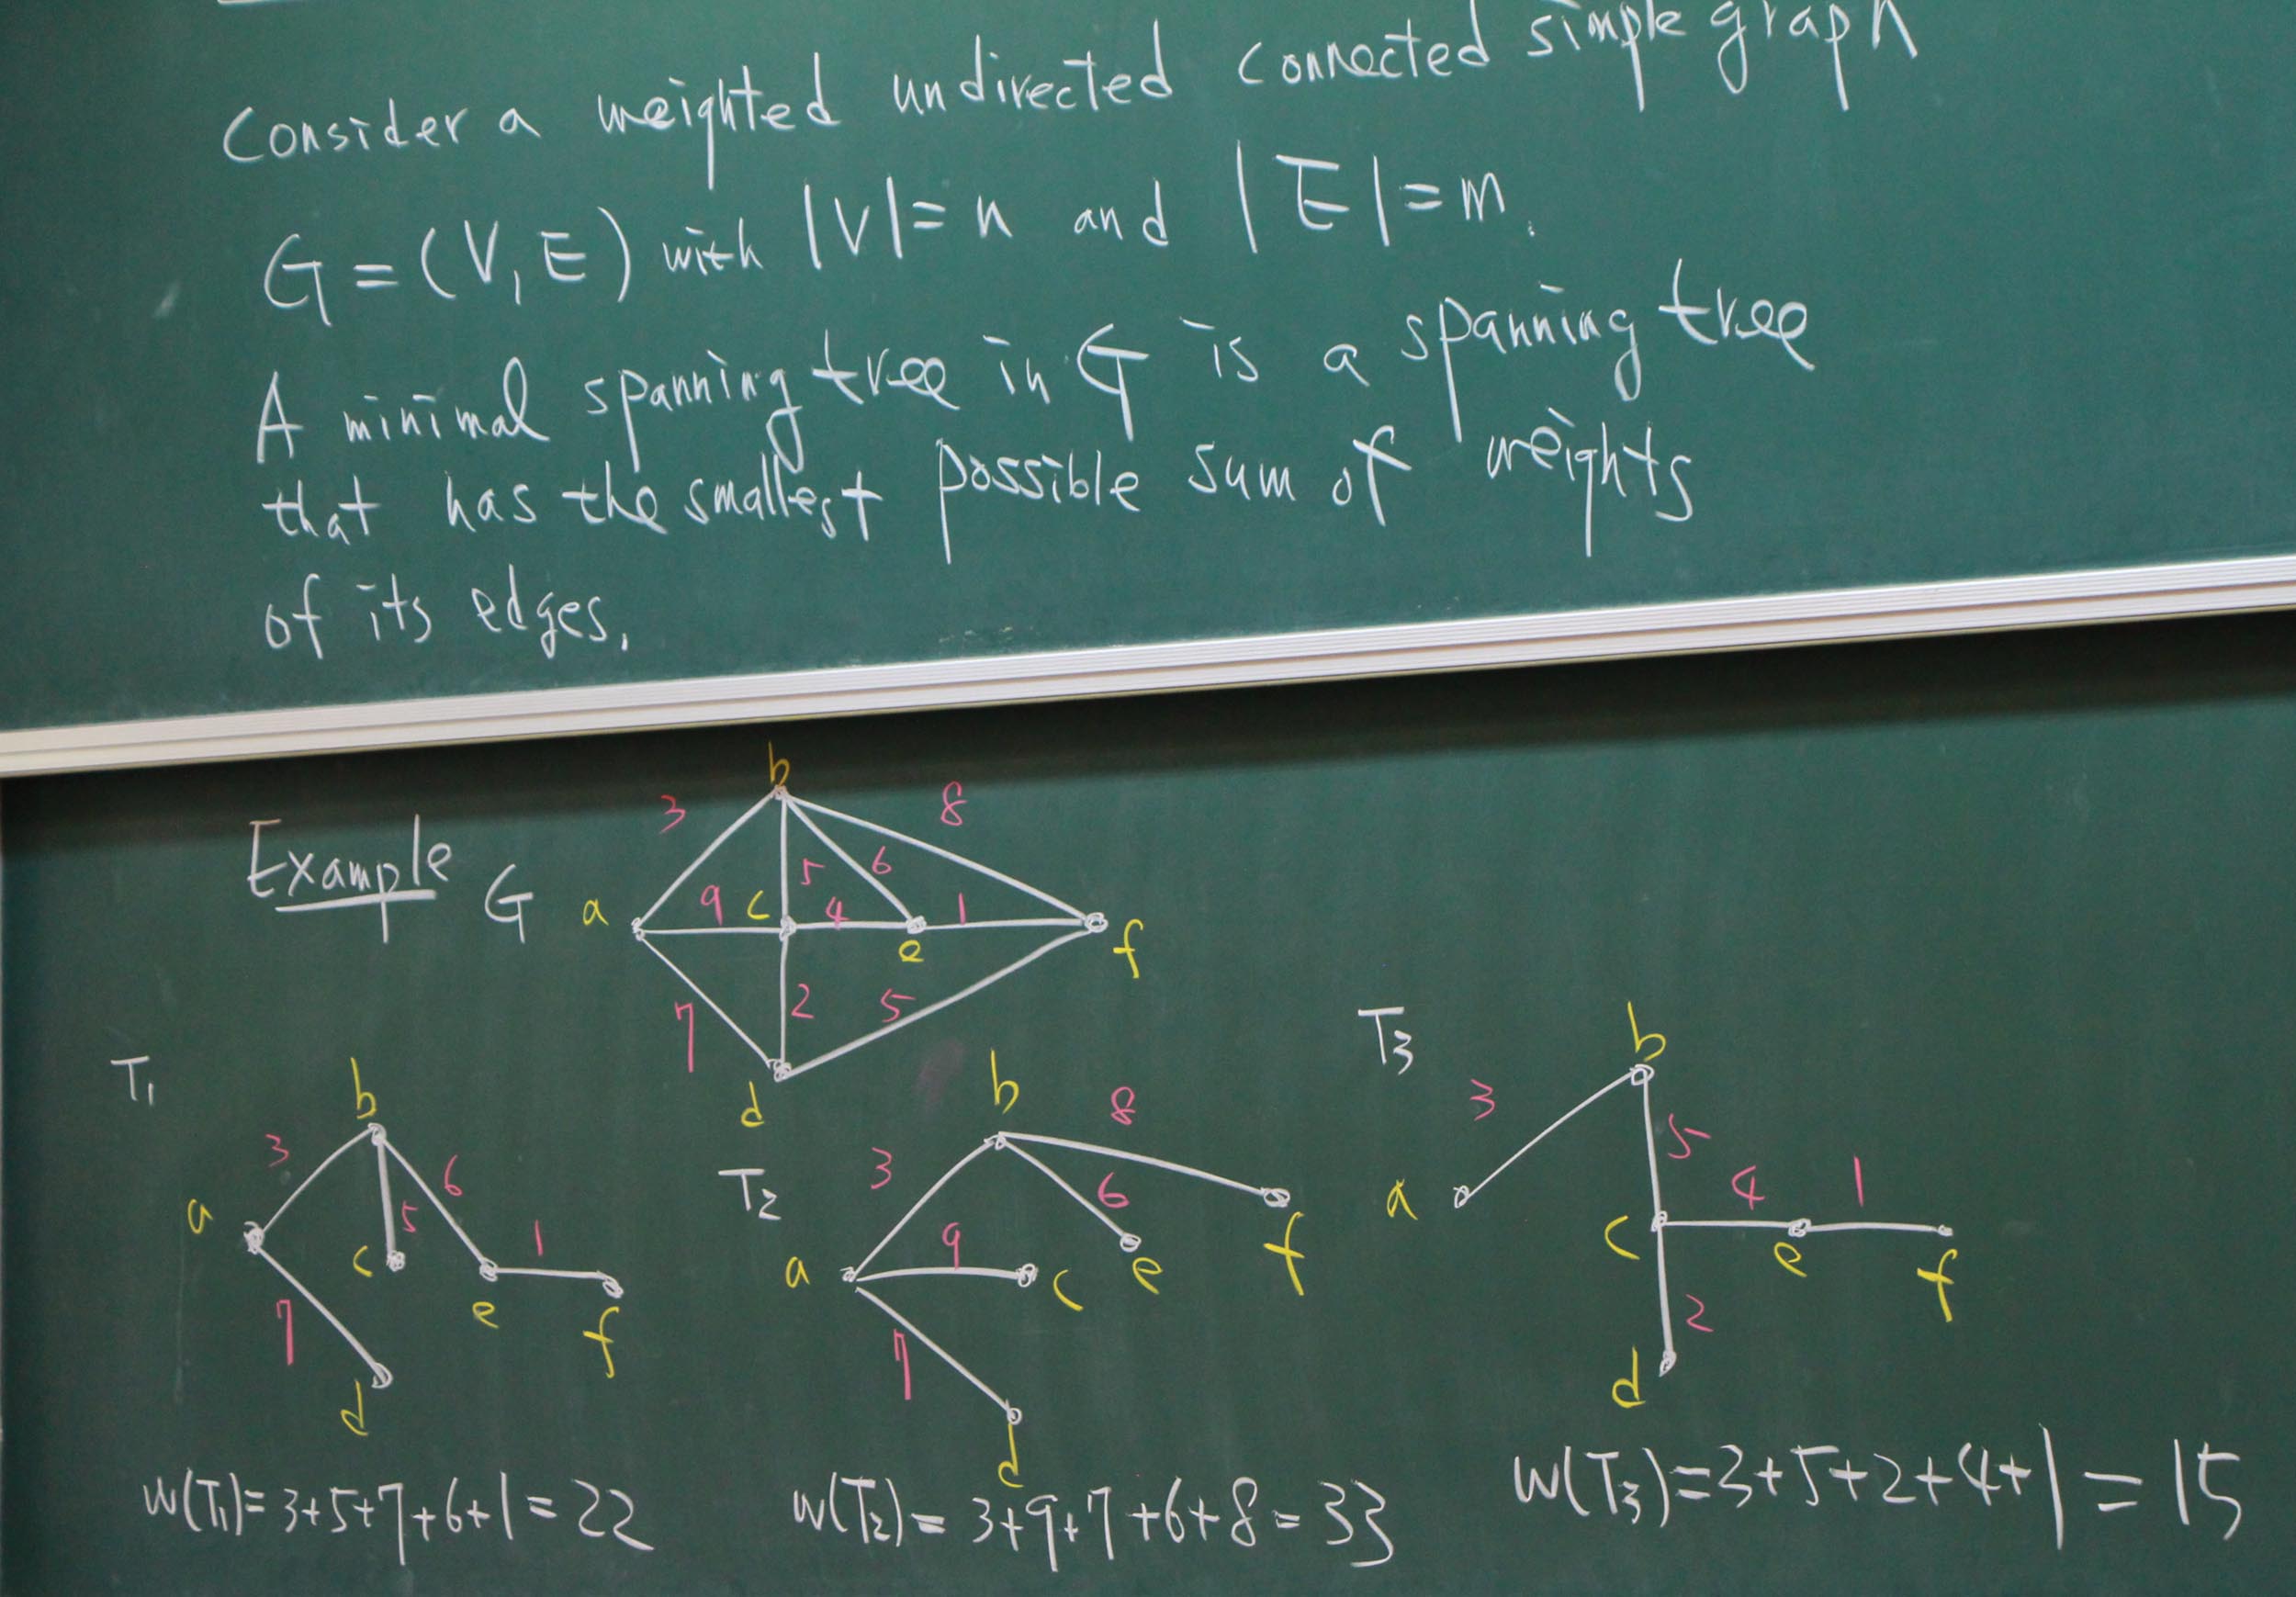 Consider a weighted undirected connected simple graph
G = (V, E) with |V| = n and |E| = m.
A minimal spanning tree in G is a spanning tree
that has the smallest possible sum of weights
of its edges.
Example G
b
3 8
5 6
a 9 c 4 1
e f
7 2 5
d
T1
b
3 6
a 5 1
c
e f
7
d
T2
b 8
3
6
a 9 c e f
7
d
T3
b
3 5
a 4 1
c e f
2
d
w(T1) = 3+5+7+6+1 = 22
w(T2) = 3+9+7+6+8 = 33
w(T3) = 3+5+2+4+1 = 15